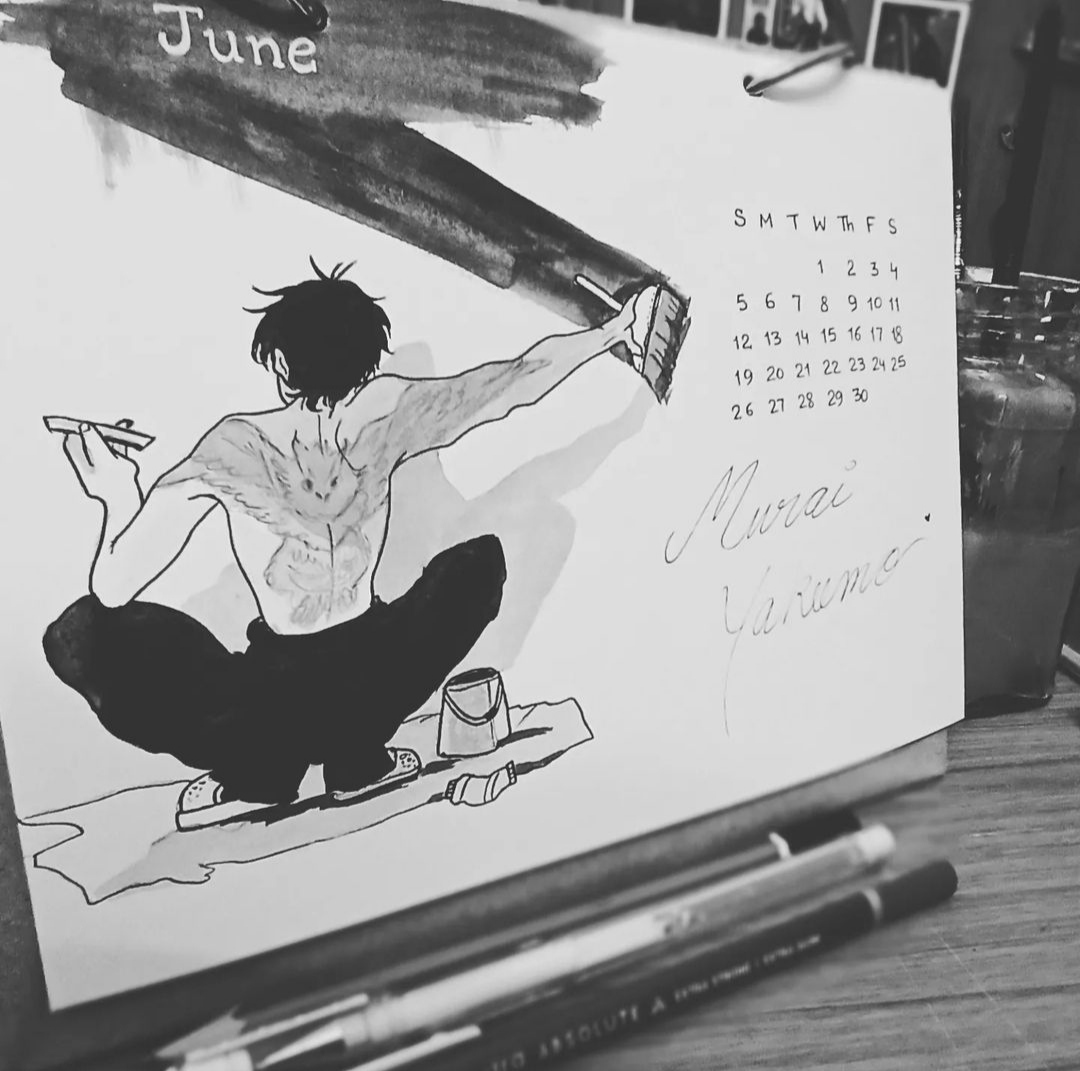 June
S M T W Th F S
1 2 3 4
5 6 7 8 9 10 11
12 13 14 15 16 17 18
19 20 21 22 23 24 25
26 27 28 29 30
Murai
Yakumo
ABSOLUTE EXTRA STRONG | EXTRA